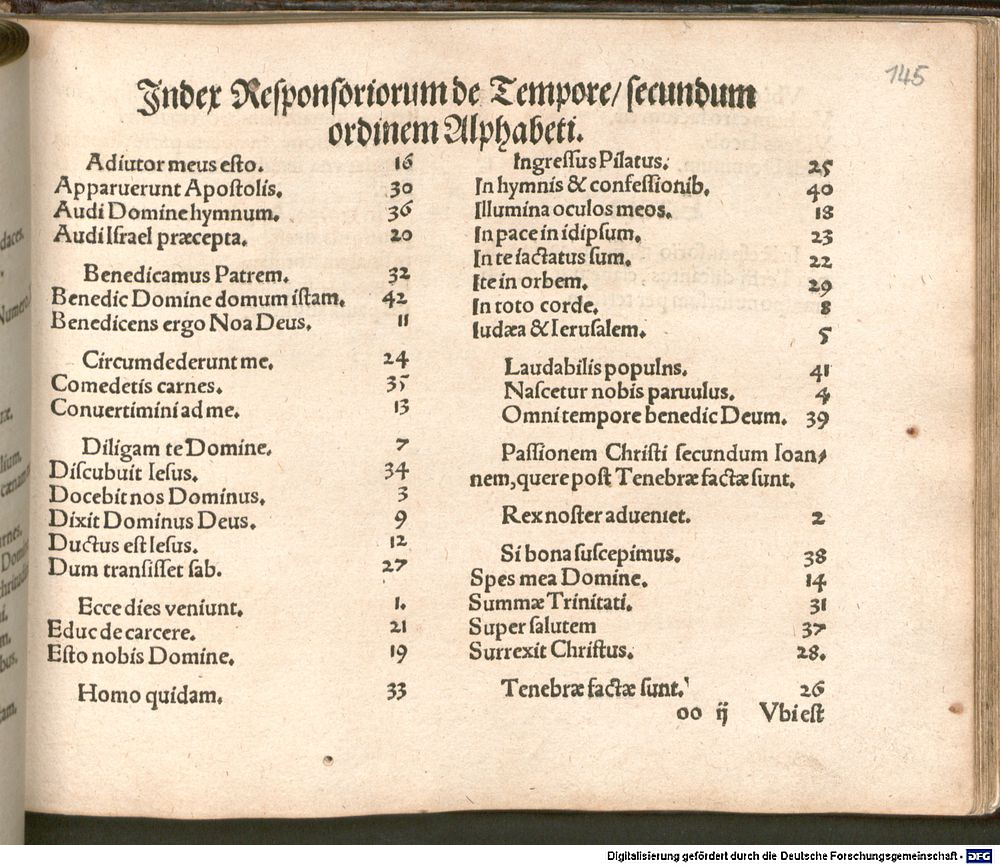 145
Index Responsoriorum de Tempore/ secundum
ordinem Alphabeti.
Adiutor meus esto. 16
Apparuerunt Apostolis. 30
Audi Domine hymnum. 36
Audi Israel præcepta. 20
Benedicamus Patrem. 32
Benedic Domine domum istam. 42
Benedicens ergo Noa Deus. 11
Circumdederunt me. 24
Comedetis carnes. 35
Conuertimini ad me. 13
Diligam te Domine. 7
Discubuit Iesus. 34
Docebit nos Dominus. 3
Dixit Dominus Deus. 9
Ductus est Iesus. 12
Dum transisset sab. 27
Ecce dies veniunt. 1.
Educ de carcere. 21
Esto nobis Domine. 19
Homo quidam. 33
Ingressus Pilatus. 25
In hymnis & confessionib. 40
Illumina oculos meos. 18
In pace in idipsum. 23
In te iactatus sum. 22
Ite in orbem. 29
In toto corde. 8
Iudæa & Ierusalem. 5
Laudabilis populns. 41
Nascetur nobis paruulus. 4
Omni tempore benedic Deum. 39
Passionem Christi secundum Ioan-
nem, quere post Tenebræ factæ sunt.
Rex noster adueniet. 2
Si bona suscepimus. 38
Spes mea Domine. 14
Summæ Trinitati. 31
Super salutem 37
Surrexit Christus. 28.
Tenebræ factæ sunt. 26
oo ij Vbi est
Digitalisierung gefördert durch die Deutsche Forschungsgemeinschaft - DFG